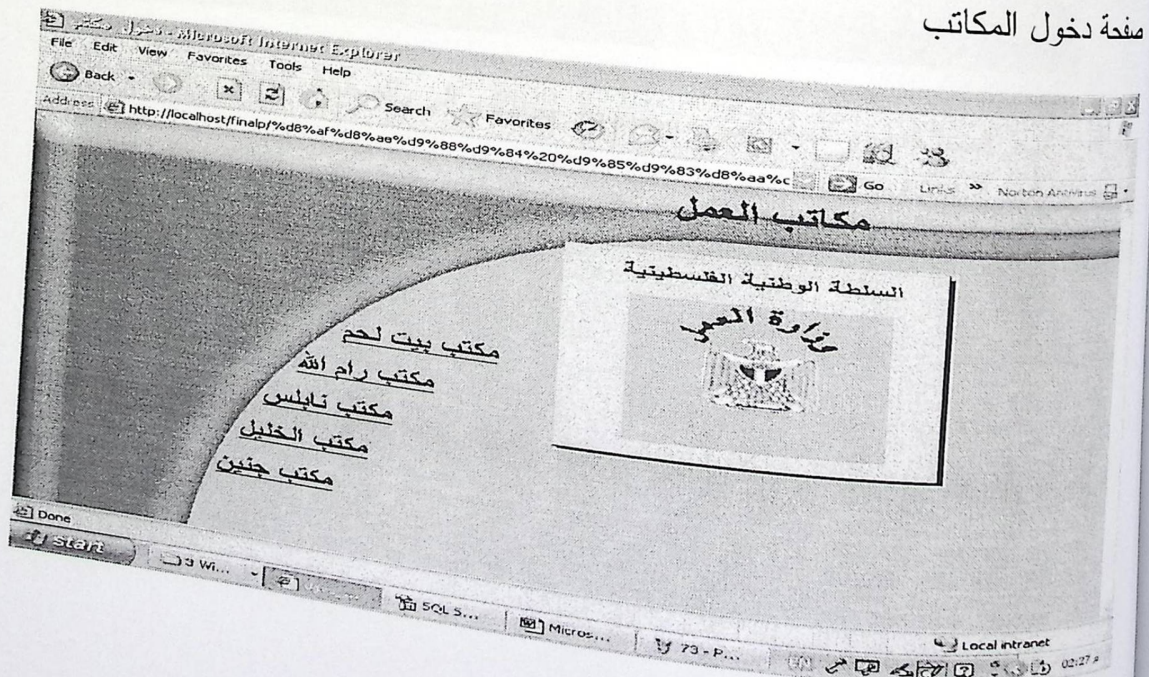 صفحة دخول المكاتب
دخول مكتب - Microsoft Internet Explorer
File Edit View Favorites Tools Help
Back Search Favorites
Address http://localhost/finalp/%d8%af%d8%ae%d9%88%d9%84%20%d9%85%d9%83%d8%aa%c Go Links » Norton AntiVirus
مكاتب العمل
السلطة الوطنية الفلسطينية
وزارة العمل
مكتب بيت لحم
مكتب رام الله
مكتب نابلس
مكتب الخليل
مكتب جنين
Done Local intranet
start 3 Wi... SQL S... Micros... 73 - P... EN 02:27 م